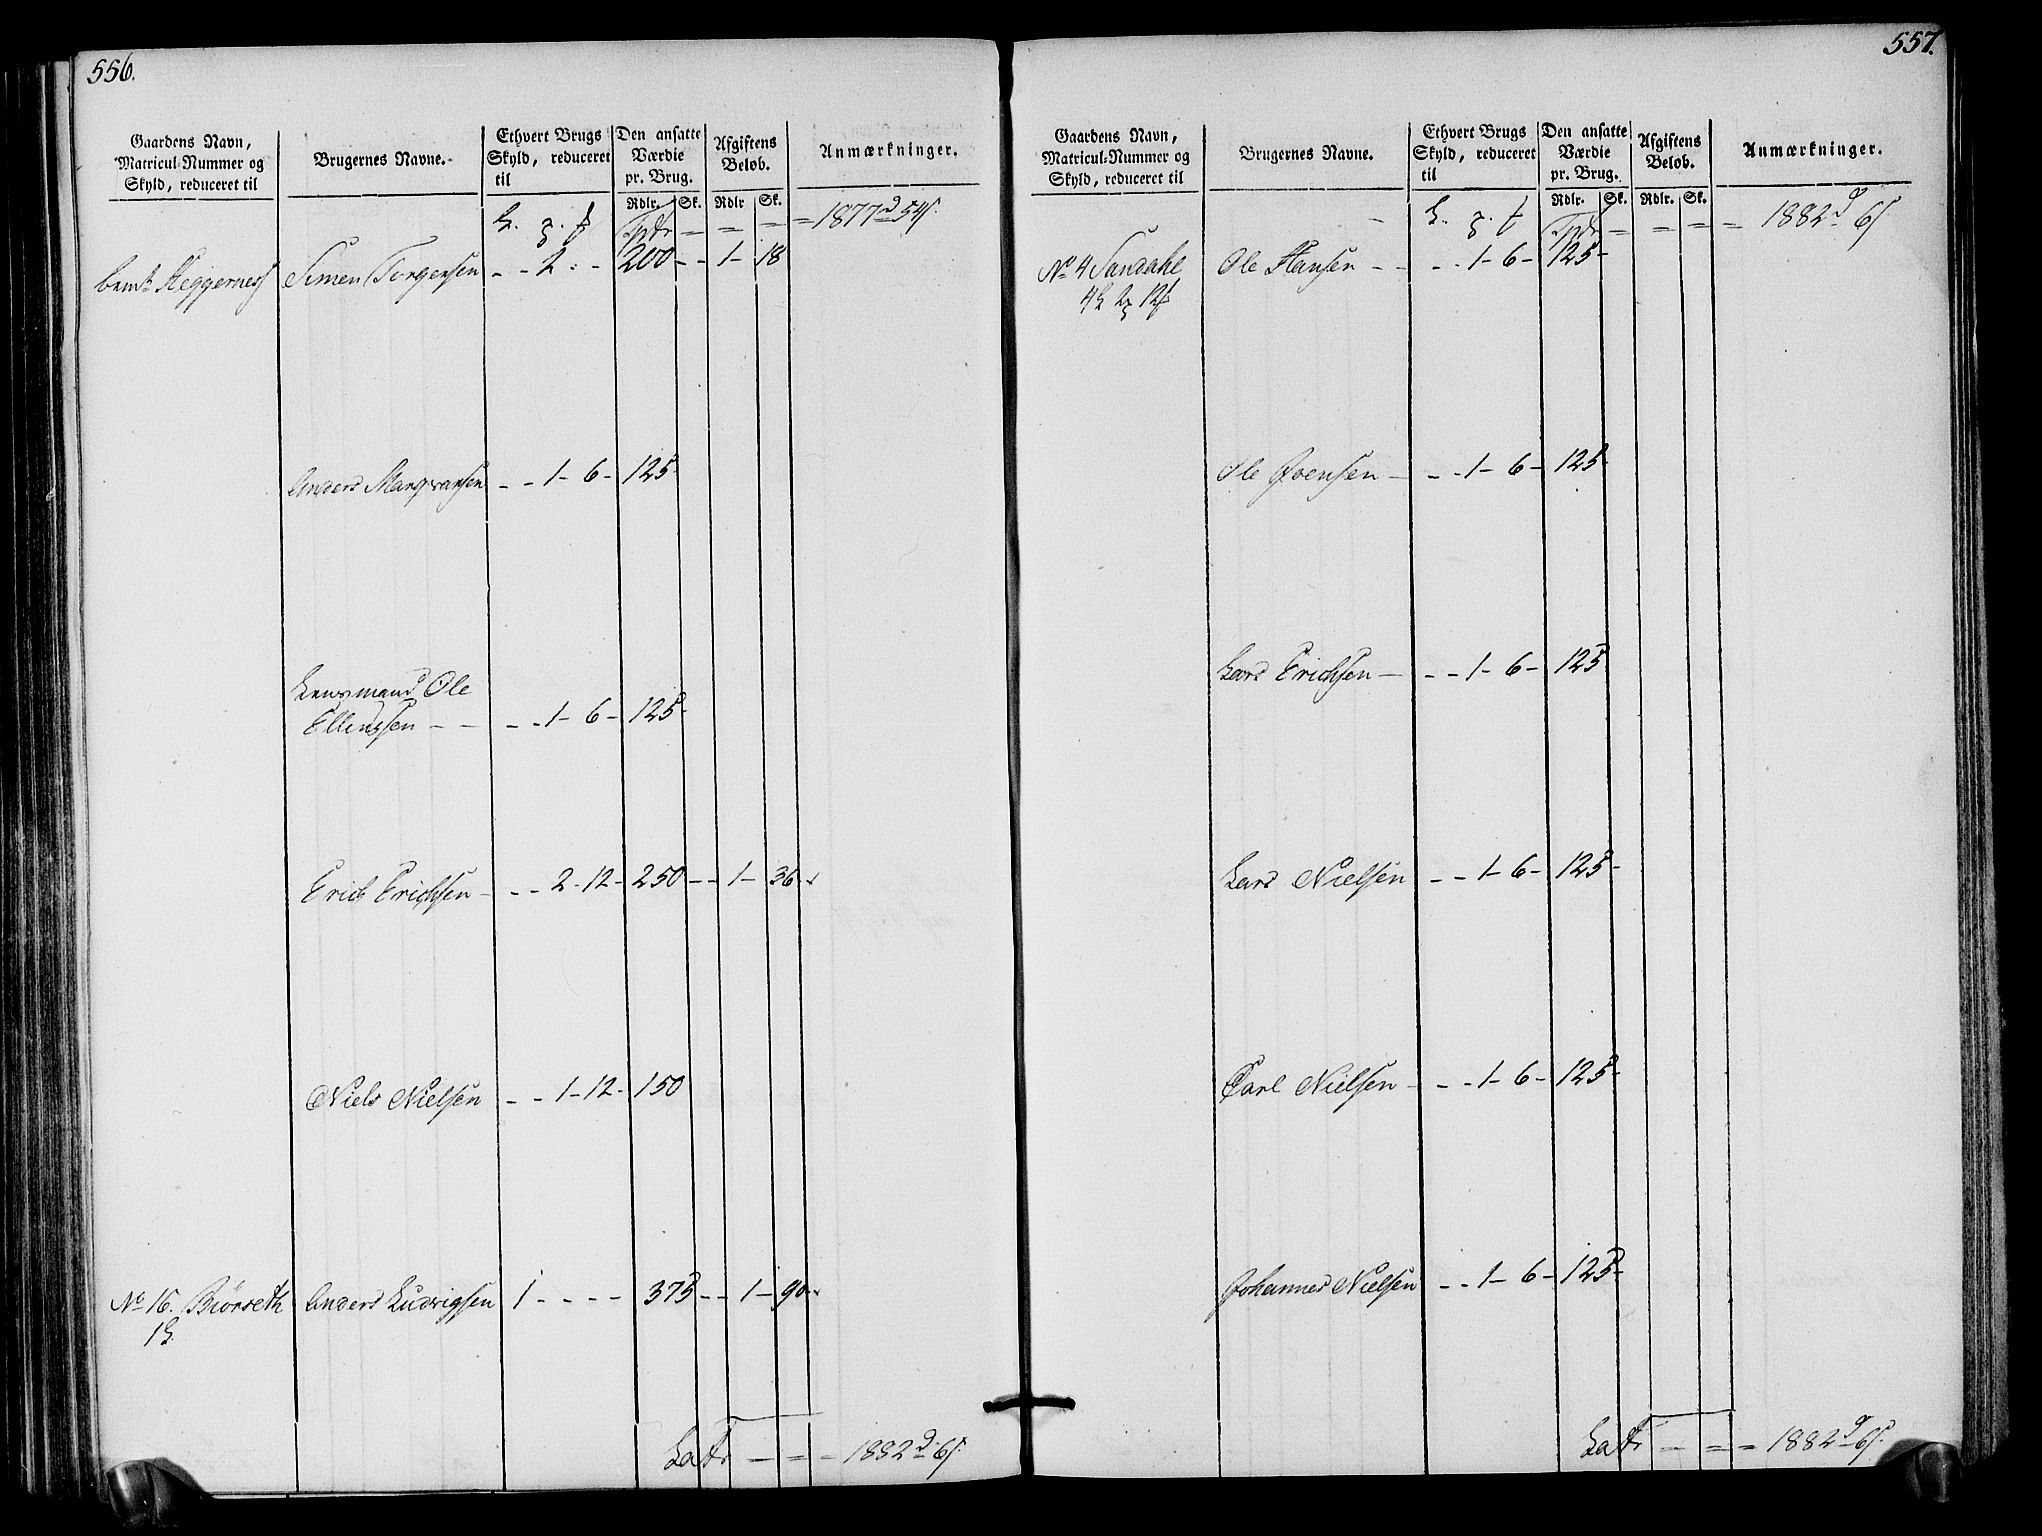 556.
Gaardens Navn,
Matricul-Nummer og
Skyld, reduceret til
Brugernes Navne.
Ethvert Brugs
Skyld, reduceret
til
Den ansatte
Værdie
pr. Brug.
Afgiftens
Beløb.
Anmærkninger.
Rdlr. Sk. Rdlr Sk.
= = = = 1877 d 54 s.
Heggernes Simen Torgersen - - 2 - - 200 - - 1 - 18
Anders Marqvarsen - - 1 - 6 - 125 -
Lensmand Ole
Ellingsen - - - - 1 - 6 - 125 -
Erich Erichsen - - - 2 - 12 - 250 - - 1 - 36 -
Niels Nielsen - - 1 - 12 - 150
No 16. Biørseth Anders Ludvigsen 1 - - - - 375 - - 1 - 90 -
1 L.
Latr - = = 1882 d 6 s.
557.
Gaardens Navn,
Matricul-Nummer og
Skyld, reduceret til
Brugernes Navne.
Ethvert Brugs
Skyld, reduceret
til
Den ansatte
Værdie
pr. Brug.
Afgiftens
Beløb.
Anmærkninger.
Rdlr. Sk. Rdlr. Sk.
= = = = 1882 d 6 s
No 4 Sandahl Ole Hansen - - - - 1 - 6 - 125 -
4 L 2 12
Ole Iversen - - - 1 - 6 - 125 -
Lars Erichsen - - - 1 - 6 - 125
Lars Nielsen - - 1 - 6 - 125 -
Carl Nielsen - - - 1 - 6 - 125 -
Johannes Nielsen - - 1 - 6 - 125 -
Latr - = = 1882 d 6 s.